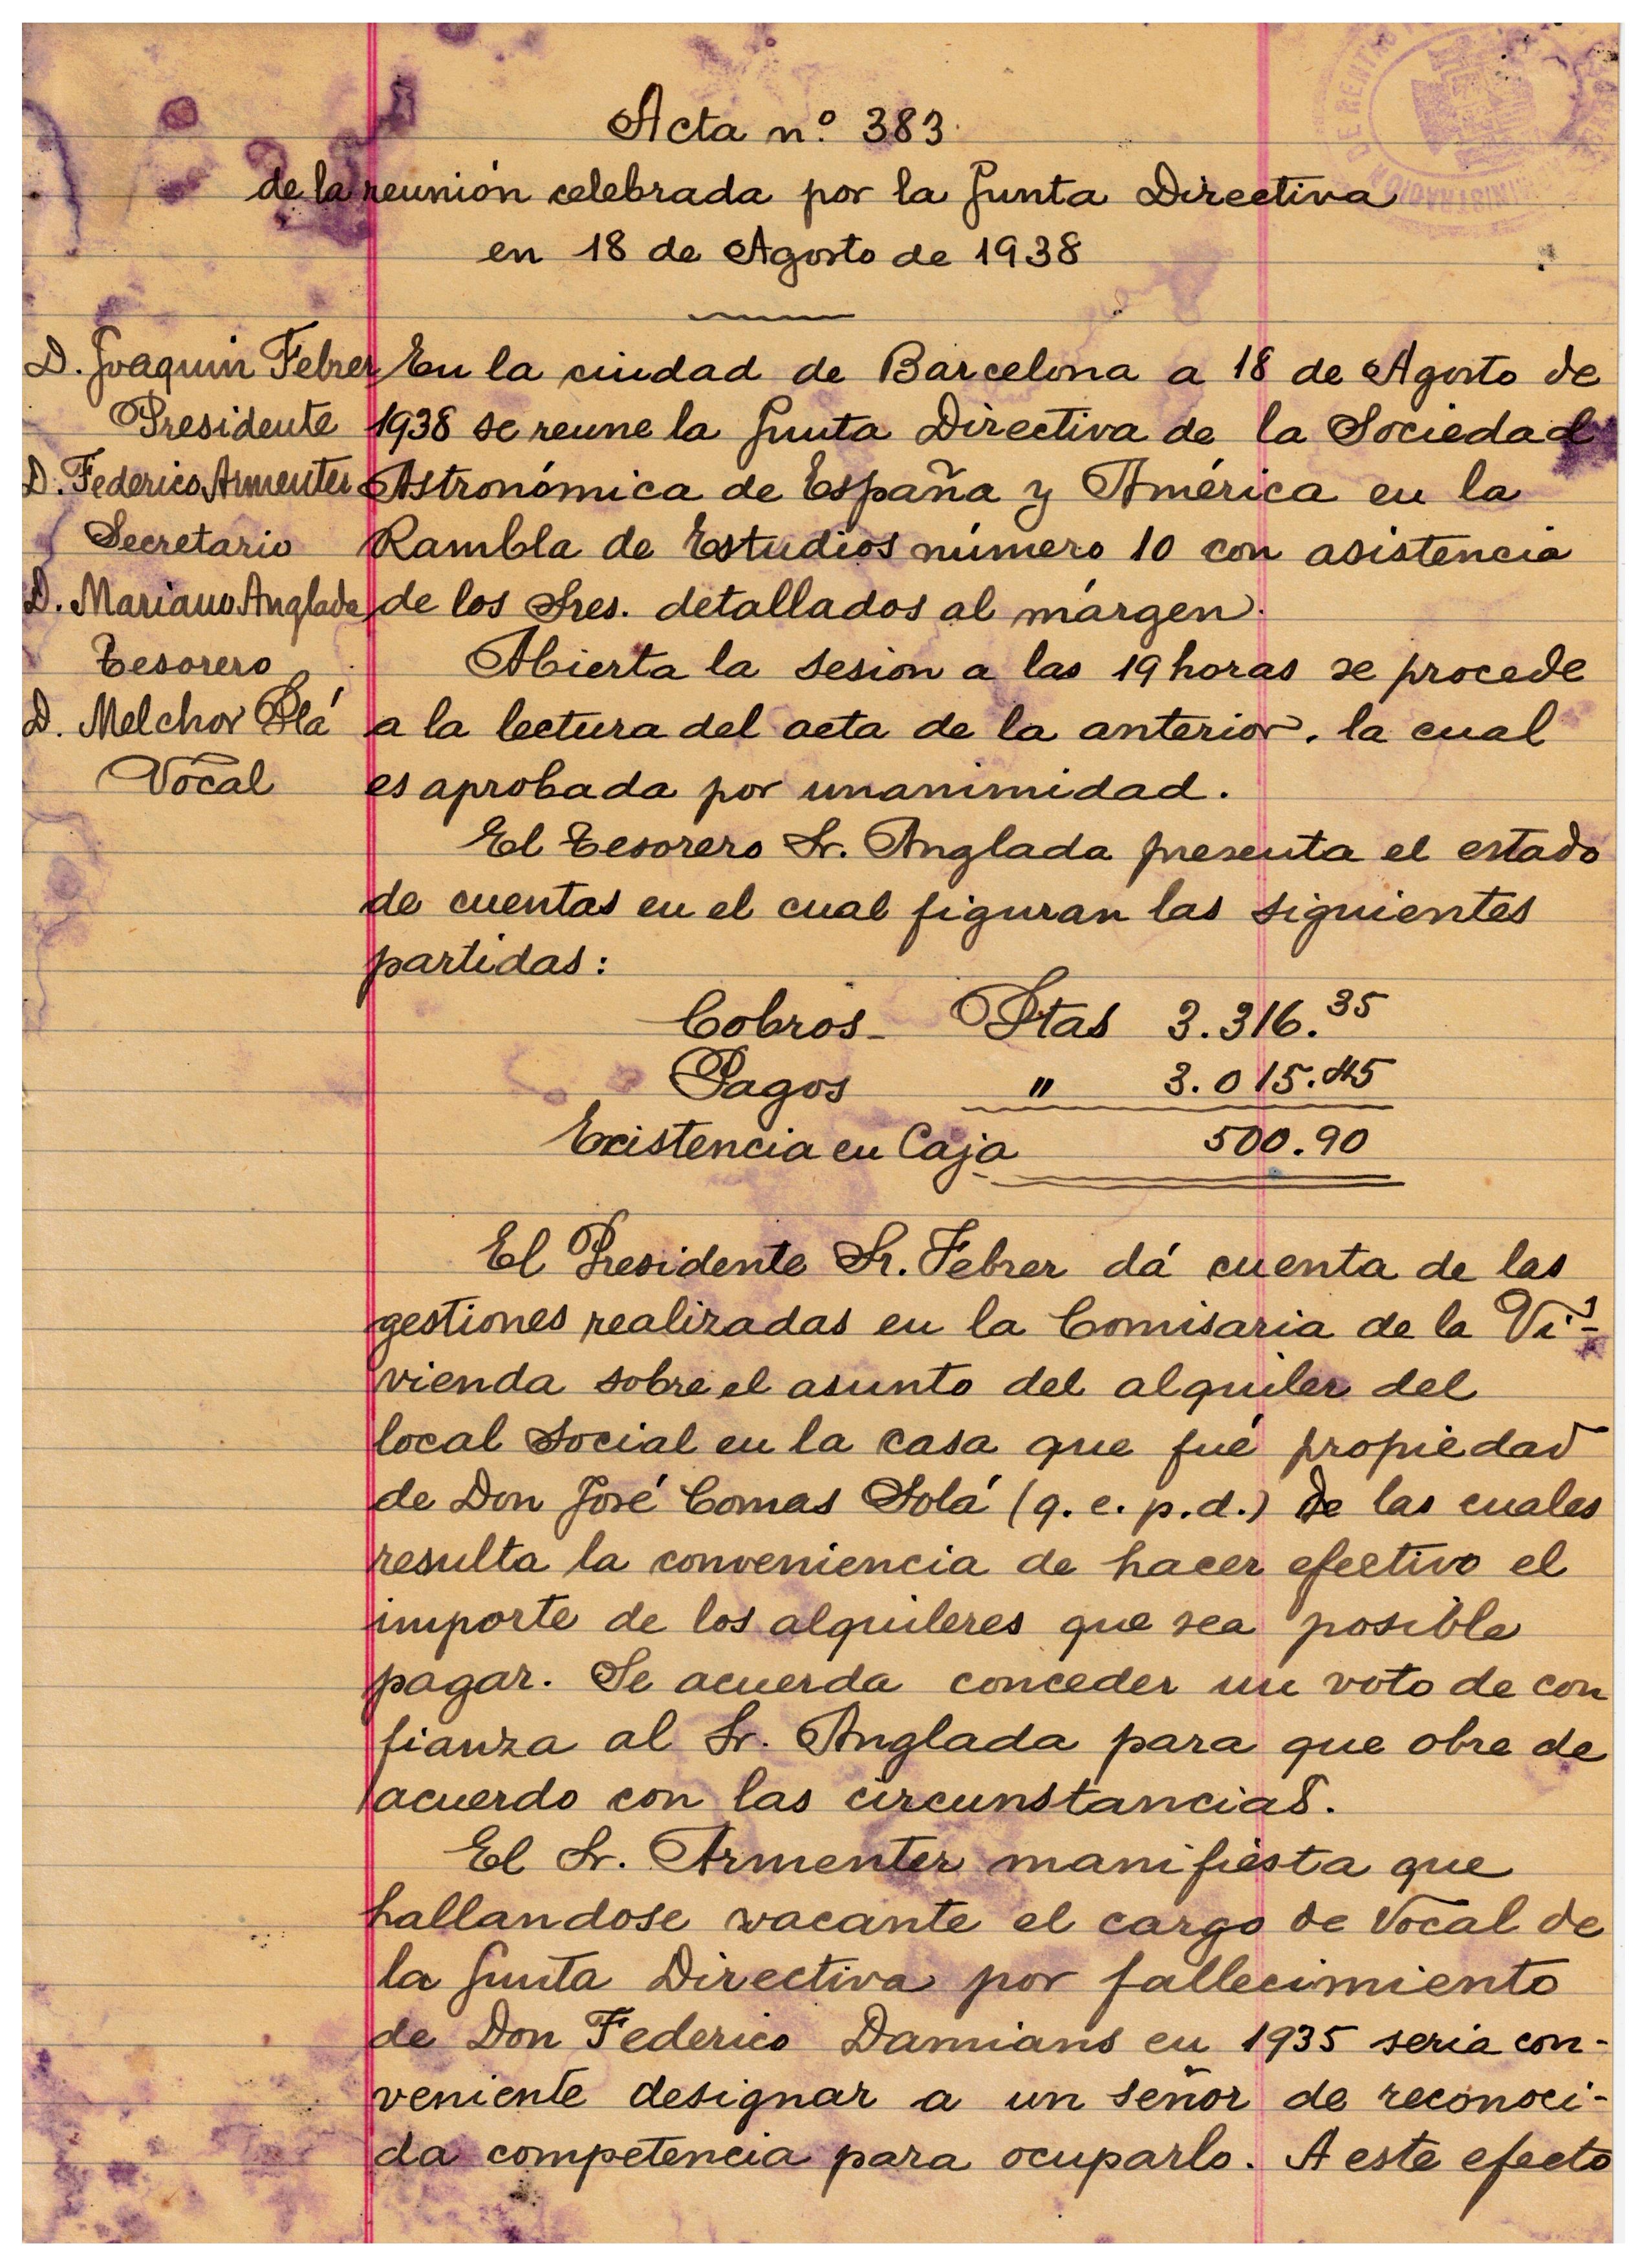 Acta n.º 383
de la reunión celebrada por la Junta Directiva
en 18 de Agosto de 1938
D. Joaquin Febrer
Presidente
D. Federico Armenter
Secretario
D. Mariano Anglada
Tesorero
D. Melchor Plá
Vocal
En la ciudad de Barcelona a 18 de Agosto de
1938 se reune la Junta Directiva de la Sociedad
Astronómica de España y América en la
Rambla de Estudios número 10 con asistencia
de los Sres. detallados al márgen.
Abierta la sesion a las 19 horas se procede
a la lectura del acta de la anterior, la cual
es aprobada por unanimidad.
El Tesorero Sr. Anglada presenta el estado
de cuentas en el cual figuran las siguientes
partidas:
Cobros Ptas 3.316.35
Pagos " 3.015.45
Existencia en Caja 500.90
El Presidente Sr. Febrer dá cuenta de las
gestiones realizadas en la Comisaria de la Vi-
vienda sobre el asunto del alquiler del
local social en la casa que fué propiedad
de Don José Comas Solá (q. e. p. d.) de las cuales
resulta la conveniencia de hacer efectivo el
importe de los alquileres que sea posible
pagar. Se acuerda conceder un voto de con
fianza al Sr. Anglada para que obre de
acuerdo con las circunstancias.
El Sr. Armenter manifiesta que
hallandose vacante el cargo de Vocal de
la Junta Directiva por fallecimiento
de Don Federico Damians en 1935 seria con-
veniente designar a un señor de reconoci-
da competencia para ocuparlo. A este efecto